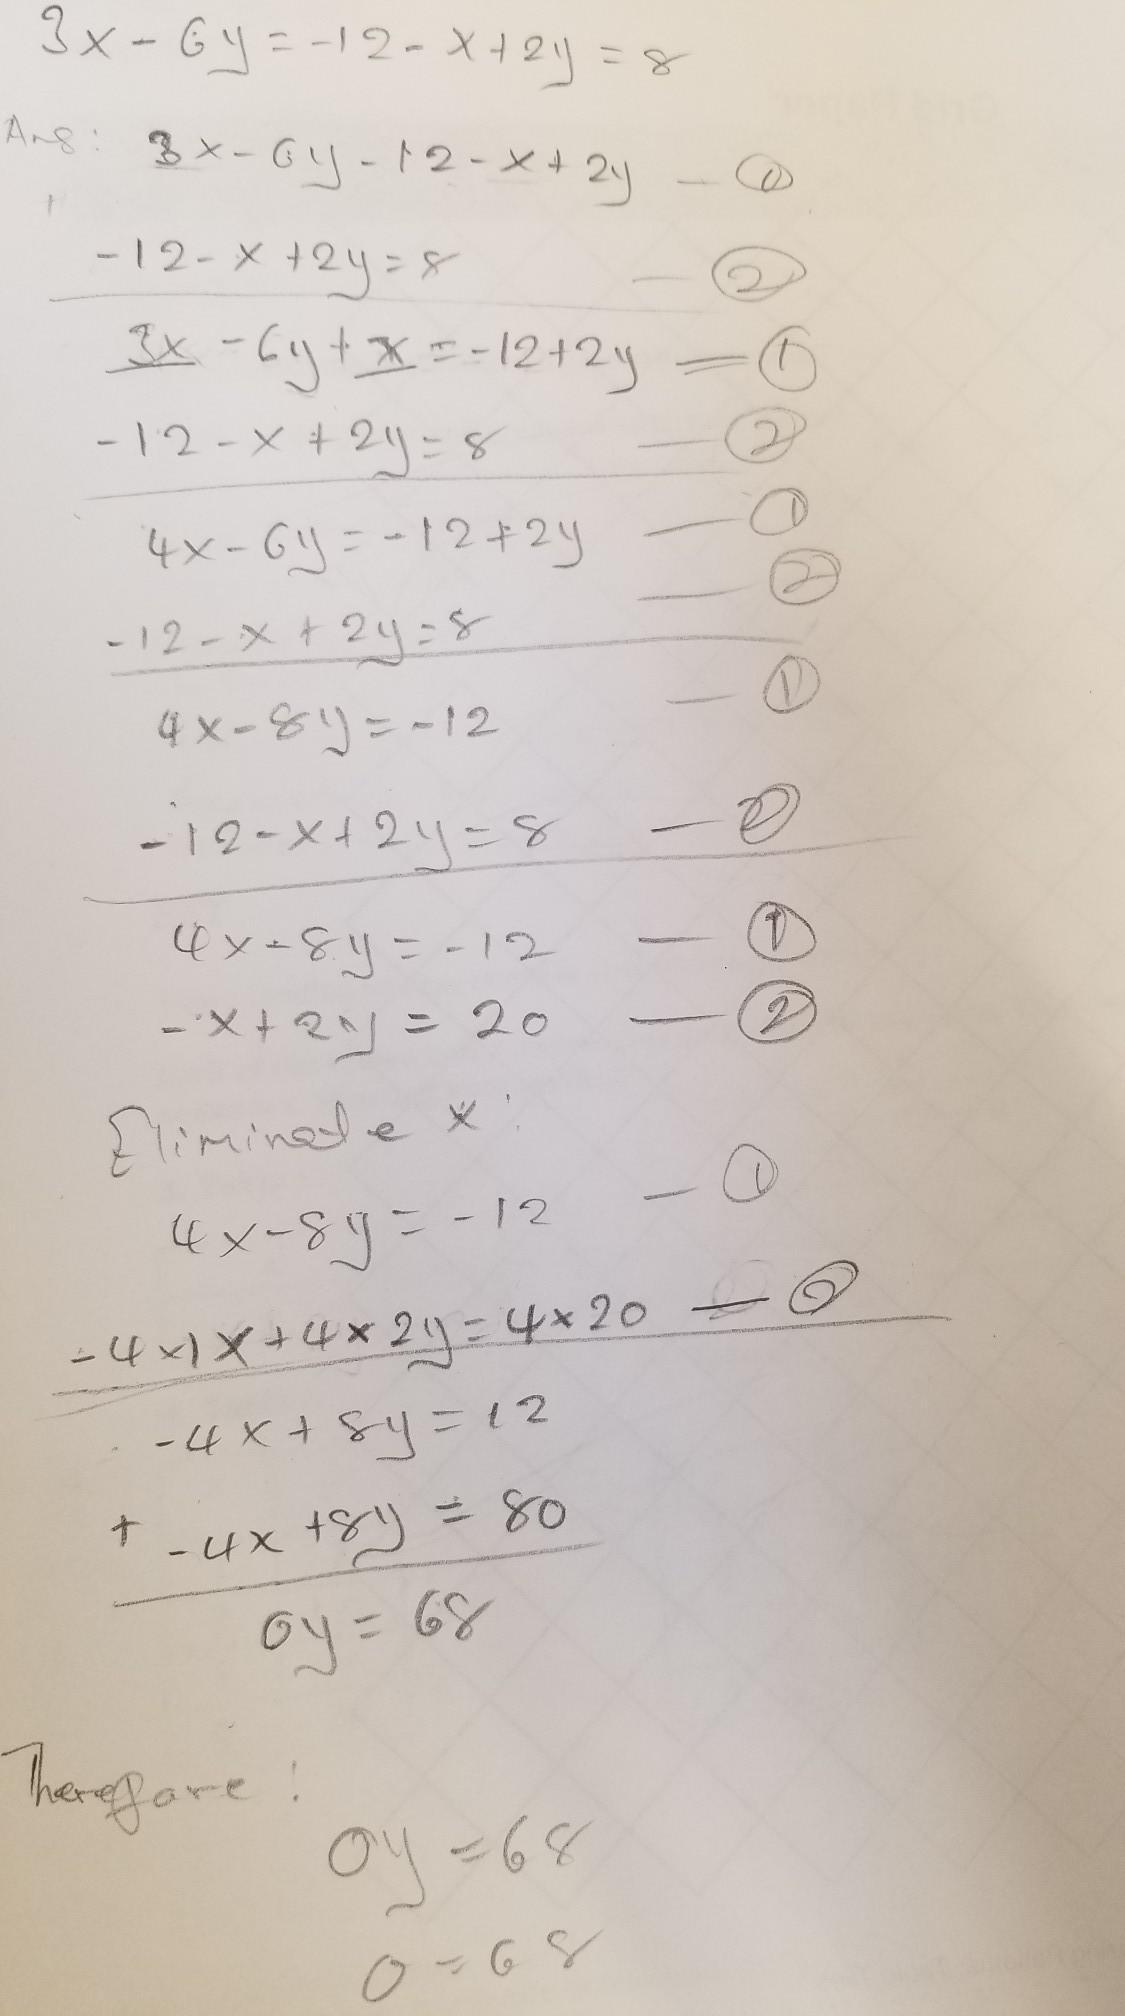 3x - 6y = -12 - x + 2y = 8
Ans: 3x - 6y - 12 - x + 2y - ①
-12 - x + 2y = 8 - ②
3x - 6y + x = -12 + 2y - ①
-12 - x + 2y = 8 - ②
4x - 6y = -12 + 2y - ①
-12 - x + 2y = 8 - ②
4x - 8y = -12 - ①
-12 - x + 2y = 8 - ②
4x - 8y = -12 - ①
-x + 2y = 20 - ②
Eliminate x:
4x - 8y = -12 - ①
-4 × 1x + 4 × 2y = 4 × 20 - ②
-4x + 8y = 12
+ -4x + 8y = 80
0y = 68
Therefore:
0y = 68
0 = 68